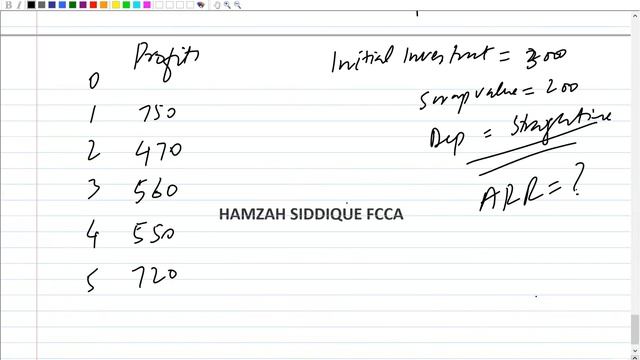 Profits
0
1 750
2 470
3 560
4 550
5 720
Initial Investment = 300
Scrap value = 200
Dep = Straightline
ARR = ?
HAMZAH SIDDIQUE FCCA